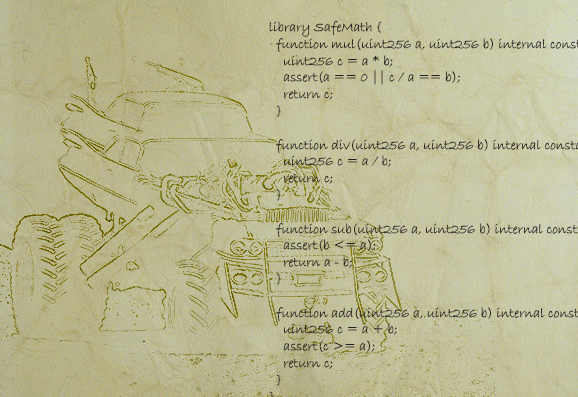 library SafeMath {
function mul(uint256 a, uint256 b) internal const
uint256 c = a * b;
assert(a == 0 || c / a == b);
return c;
}
function div(uint256 a, uint256 b) internal consta
uint256 c = a / b;
return c;
}
function sub(uint256 a, uint256 b) internal const
assert(b <= a);
return a - b;
}
function add(uint256 a, uint256 b) internal const
uint256 c = a + b;
assert(c >= a);
return c;
}
}